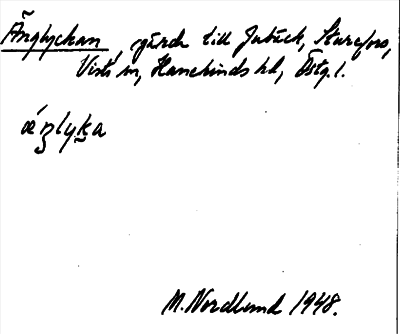 Änglyckan, gärde till Jubäck, Sturefors,
Vists sn, Hanekinds hd, Östg. l.
æ´ŋlyka
M. Nordlund 1948.